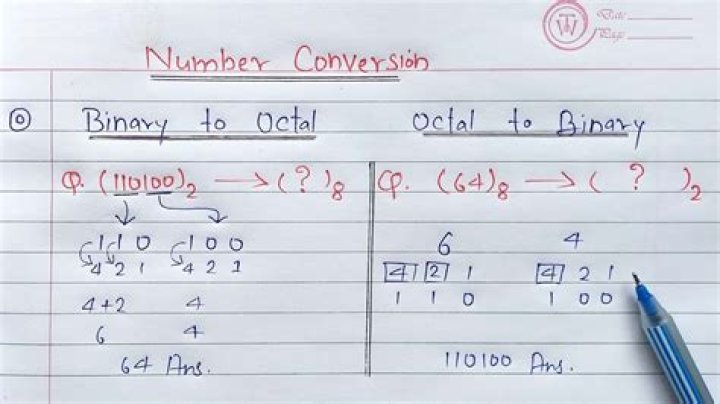 Date
Page
Number Conversion
Binary to Octal
Q. (110100)₂ → (?)₈
1 1 0 1 0 0
4 2 1 4 2 1
4+2 4
6 4
64 Ans.
Octal to Binary
Q. (64)₈ → ( ? )₂
6 4
4 2 1 4 2 1
1 1 0 1 0 0
110100 Ans.